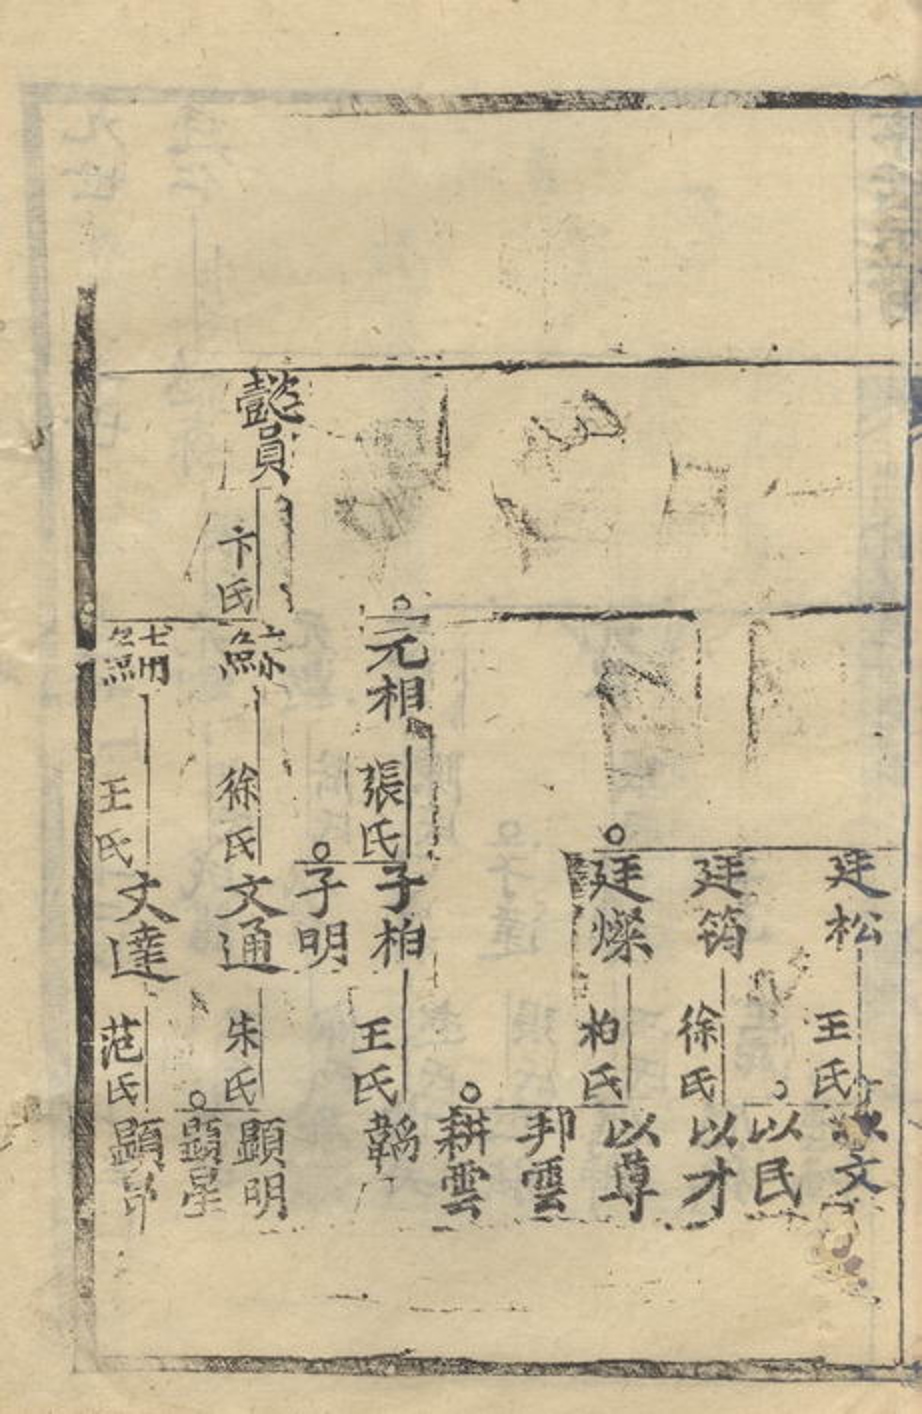 廷松
王氏
文
以民
廷筠
徐氏
以才
廷燦
柏氏
以尊
邦雲
耕雲
元相
張氏
子柏
王氏
子明
懿員
卞氏
徐氏
文通
朱氏
顯明
顯星
王氏
文達
范氏
顯昂